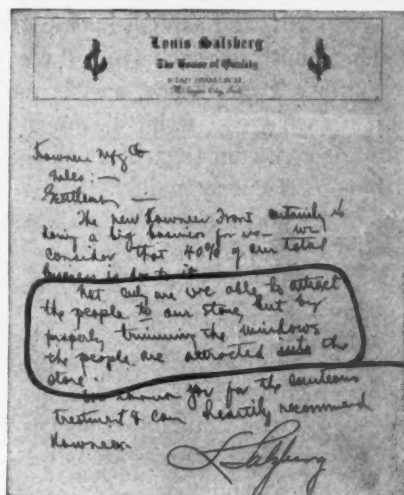 Louis Salzberg
The House of Quality
Michigan City, Ind.
Kawneer Mfg Co
Niles: —
Gentlemen —
The new Kawneer Front certainly is
doing a big business for us — we
consider that 40% of our total
business is due to it.
Not only are we able to attract
the people to our store, but by
properly trimming the windows
the people are attracted into the
store.
We thank you for the courteous
treatment & can heartily recommend
Kawneer.
L Salzberg